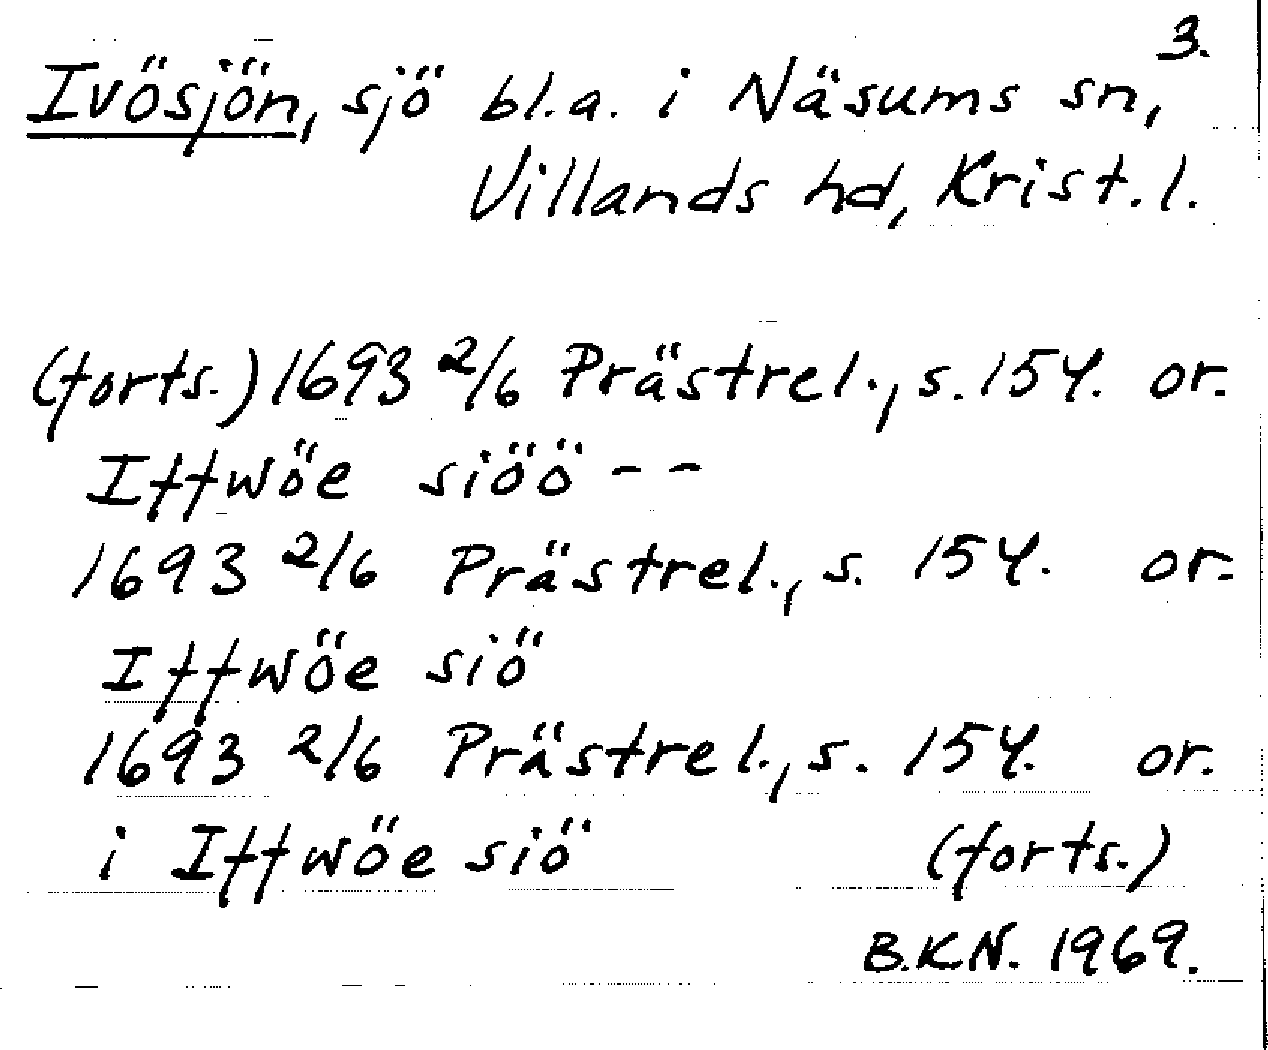 3.
Ivösjön, sjö bl.a. i Näsums sn,
Villands hd, Krist. l.
(forts.) 1693 2/6 Prästrel., s. 154. or.
Iffwöe siöö - -
1693 2/6 Prästrel., s. 154. or.
Iffwöe siö
1693 2/6 Prästrel., s. 154. or.
i Iffwöe siö (forts.)
B.K.N. 1969.